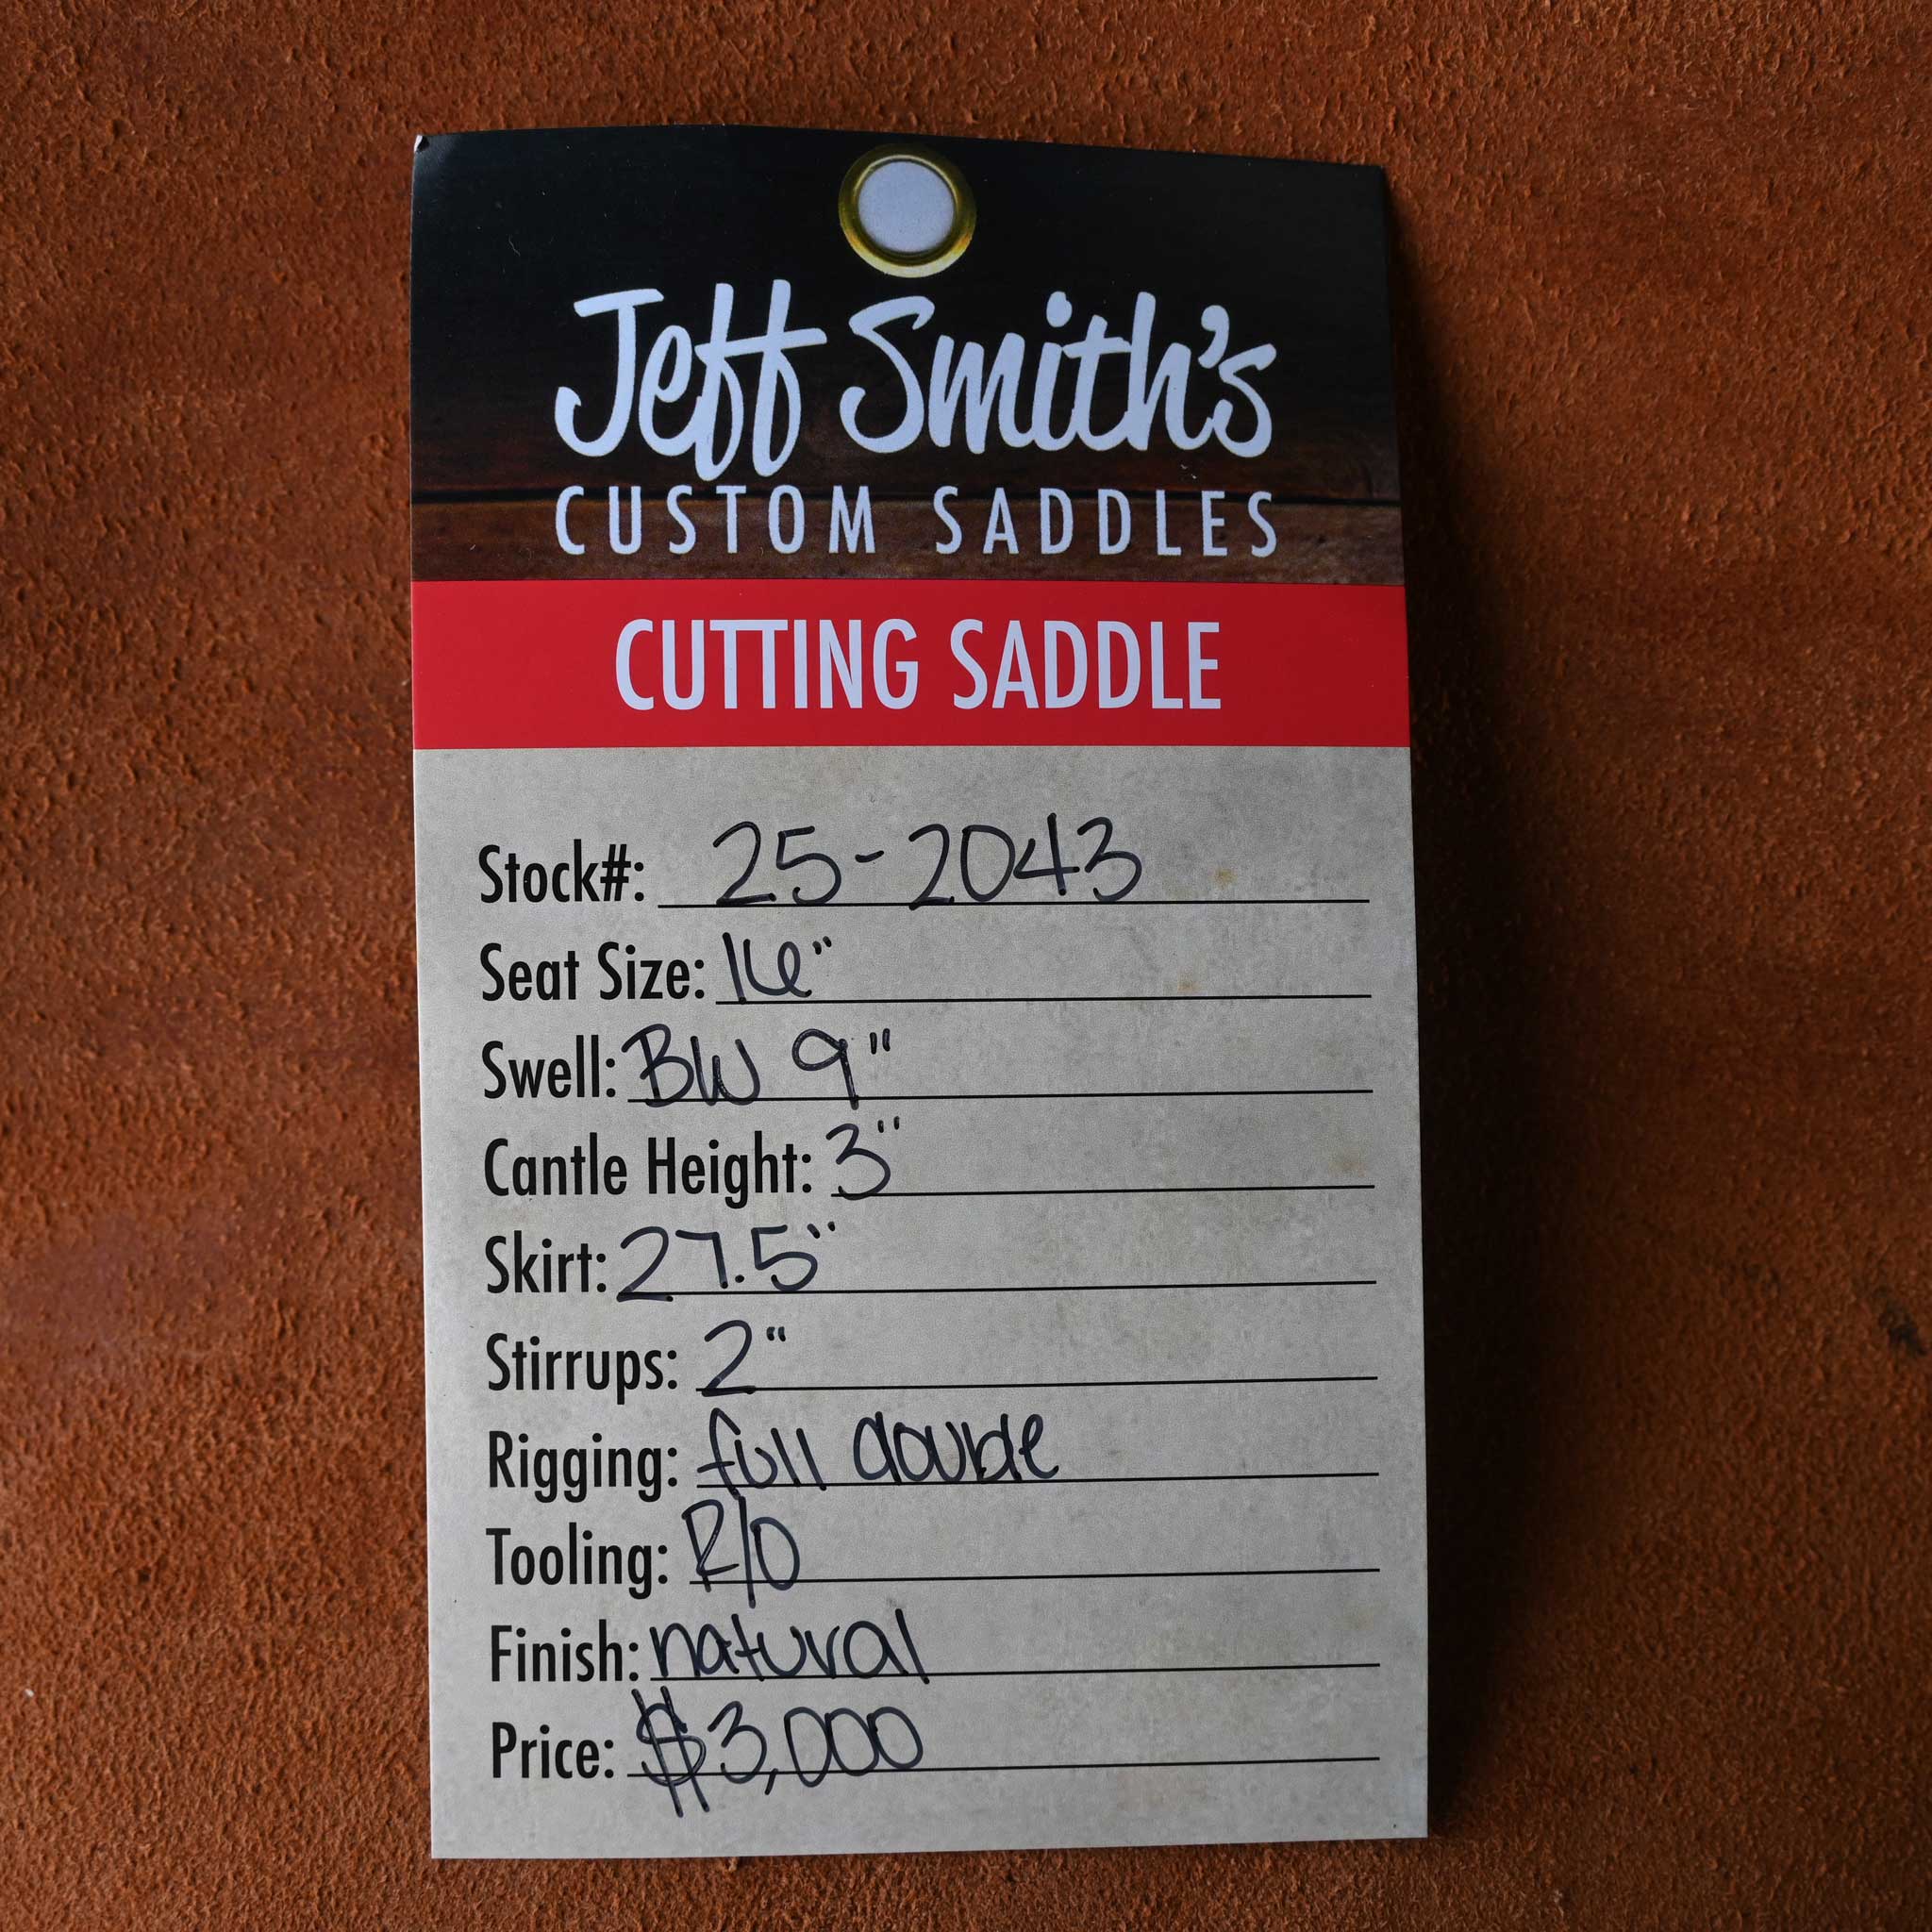 Jeff Smith's
CUSTOM SADDLES
CUTTING SADDLE
Stock#: 25-2043
Seat Size: 16"
Swell: BW 9"
Cantle Height: 3"
Skirt: 27.5"
Stirrups: 2"
Rigging: full double
Tooling: R/O
Finish: natural
Price: $3,000